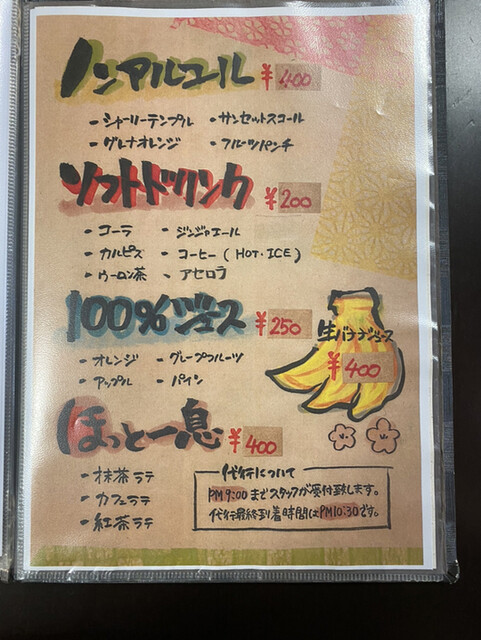 ノンアルコール ¥400
・シャーリーテンプル ・サンセットスコール
・グレナオレンジ ・フルーツパンチ
ソフトドリンク ¥200
・コーラ ・ジンジャエール
・カルピス ・コーヒー(HOT・ICE)
・ウーロン茶 ・アセロラ
100%ジュース ¥250
・オレンジ ・グレープフルーツ
・アップル ・パイン
生バナナジュース
¥400
ほっと一息 ¥400
・抹茶ラテ
・カフェラテ
・紅茶ラテ
代行について
PM9:00までスタッフが受付致します。
代行最終到着時間はPM10:30です。